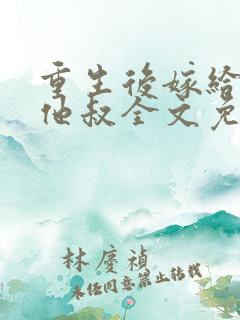 重生後嫁給
他叔全文免
林慶禎
未经同意禁止转载